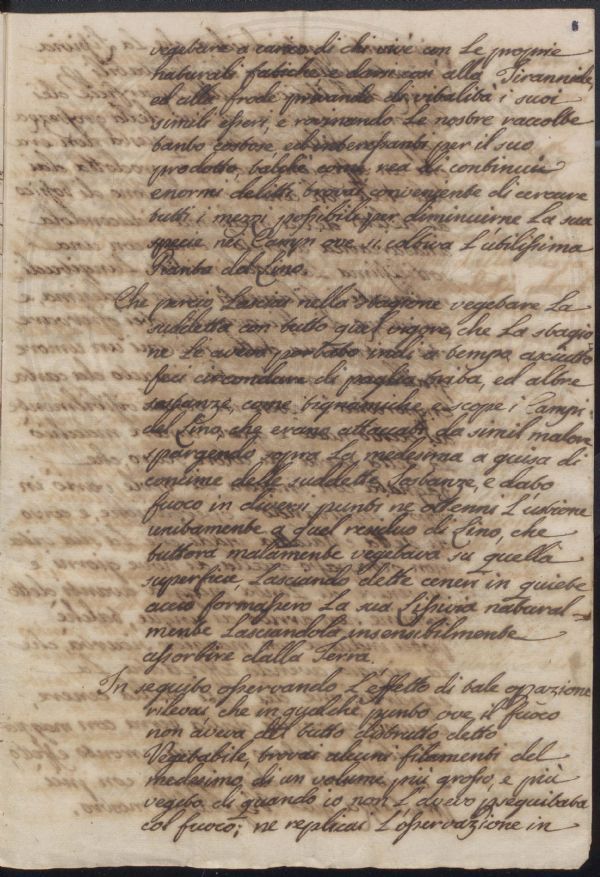 vegetare a carico di chi vive con le proprie
naturali fatiche e darsi così alla Tirannide,
ed alle frode privando di vitalità i suoi
simili esseri, e rovinando le nostre raccolte
tanto costose ed interessanti per il suo
prodotto, talchè come rea di continui
enormi delitti trovai conveniente di cercare
tutti i mezzi possibili per diminuerne la sua
specie nei Campi ove si coltiva l'utilissima
Pianta del Lino.
Che perciò lasciai nella stagione vegetare la
suddetta con tutto quel vigore, che la stagio
ne le aveva portato indi a tempo asciutto
feci circondare di paglia trita, ed altre
sostanze, come tignamiche, e scope i Campi
del Lino, che erano attaccati da simil malore
spargendo sopra la medesima a guisa di
concime delle suddette sostanze, e dato
fuoco in diversi punti ne ottenni l'ustione
unitamente a quel residuo di Lino, che
tuttora malamente vegetava su quella
superficie, lasciando dette ceneri in quiete
acciò formassero la sua Lissivia natural-
mente lasciandola insensibilmente
assorbire dalla Terra.
In seguito, osservando l'effetto di tale opazione
rilevai che in qualche punto ove il fuoco
non aveva del tutto distrutto detto
Vegetabile, trovai alcuni filamenti del
medesimo di un volume più grosso, e più
vegeto, di quando io non l'avevo pseguitata
col fuoco; ne replicai l'osservazione in